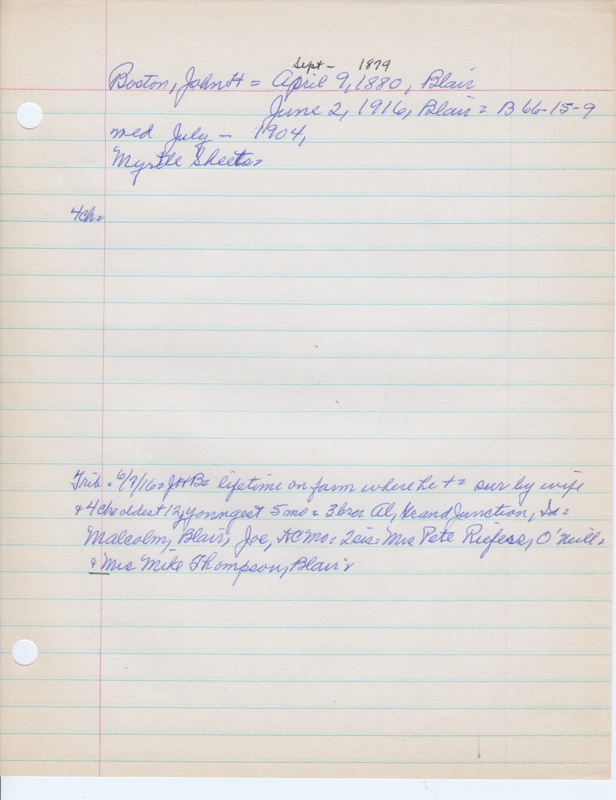 Sept - 1879
Boston, John H = April 9, 1880, Blair
June 2, 1916, Blair = B 66-15-9
med July - 1904,
Myrtle Sheets=
4ch=
Trib = 6/7/16= JHB= lifetime on farm where he += sur by wife
& 4ch= oldest 12, youngest 5 mo = 3 bros Al, Grand Junction, Ia=
Malcolm, Blair, Joe, KC Mo= 2 sis= Mrs Pete O'Neill=
& Mrs Mike Thompson, Blair